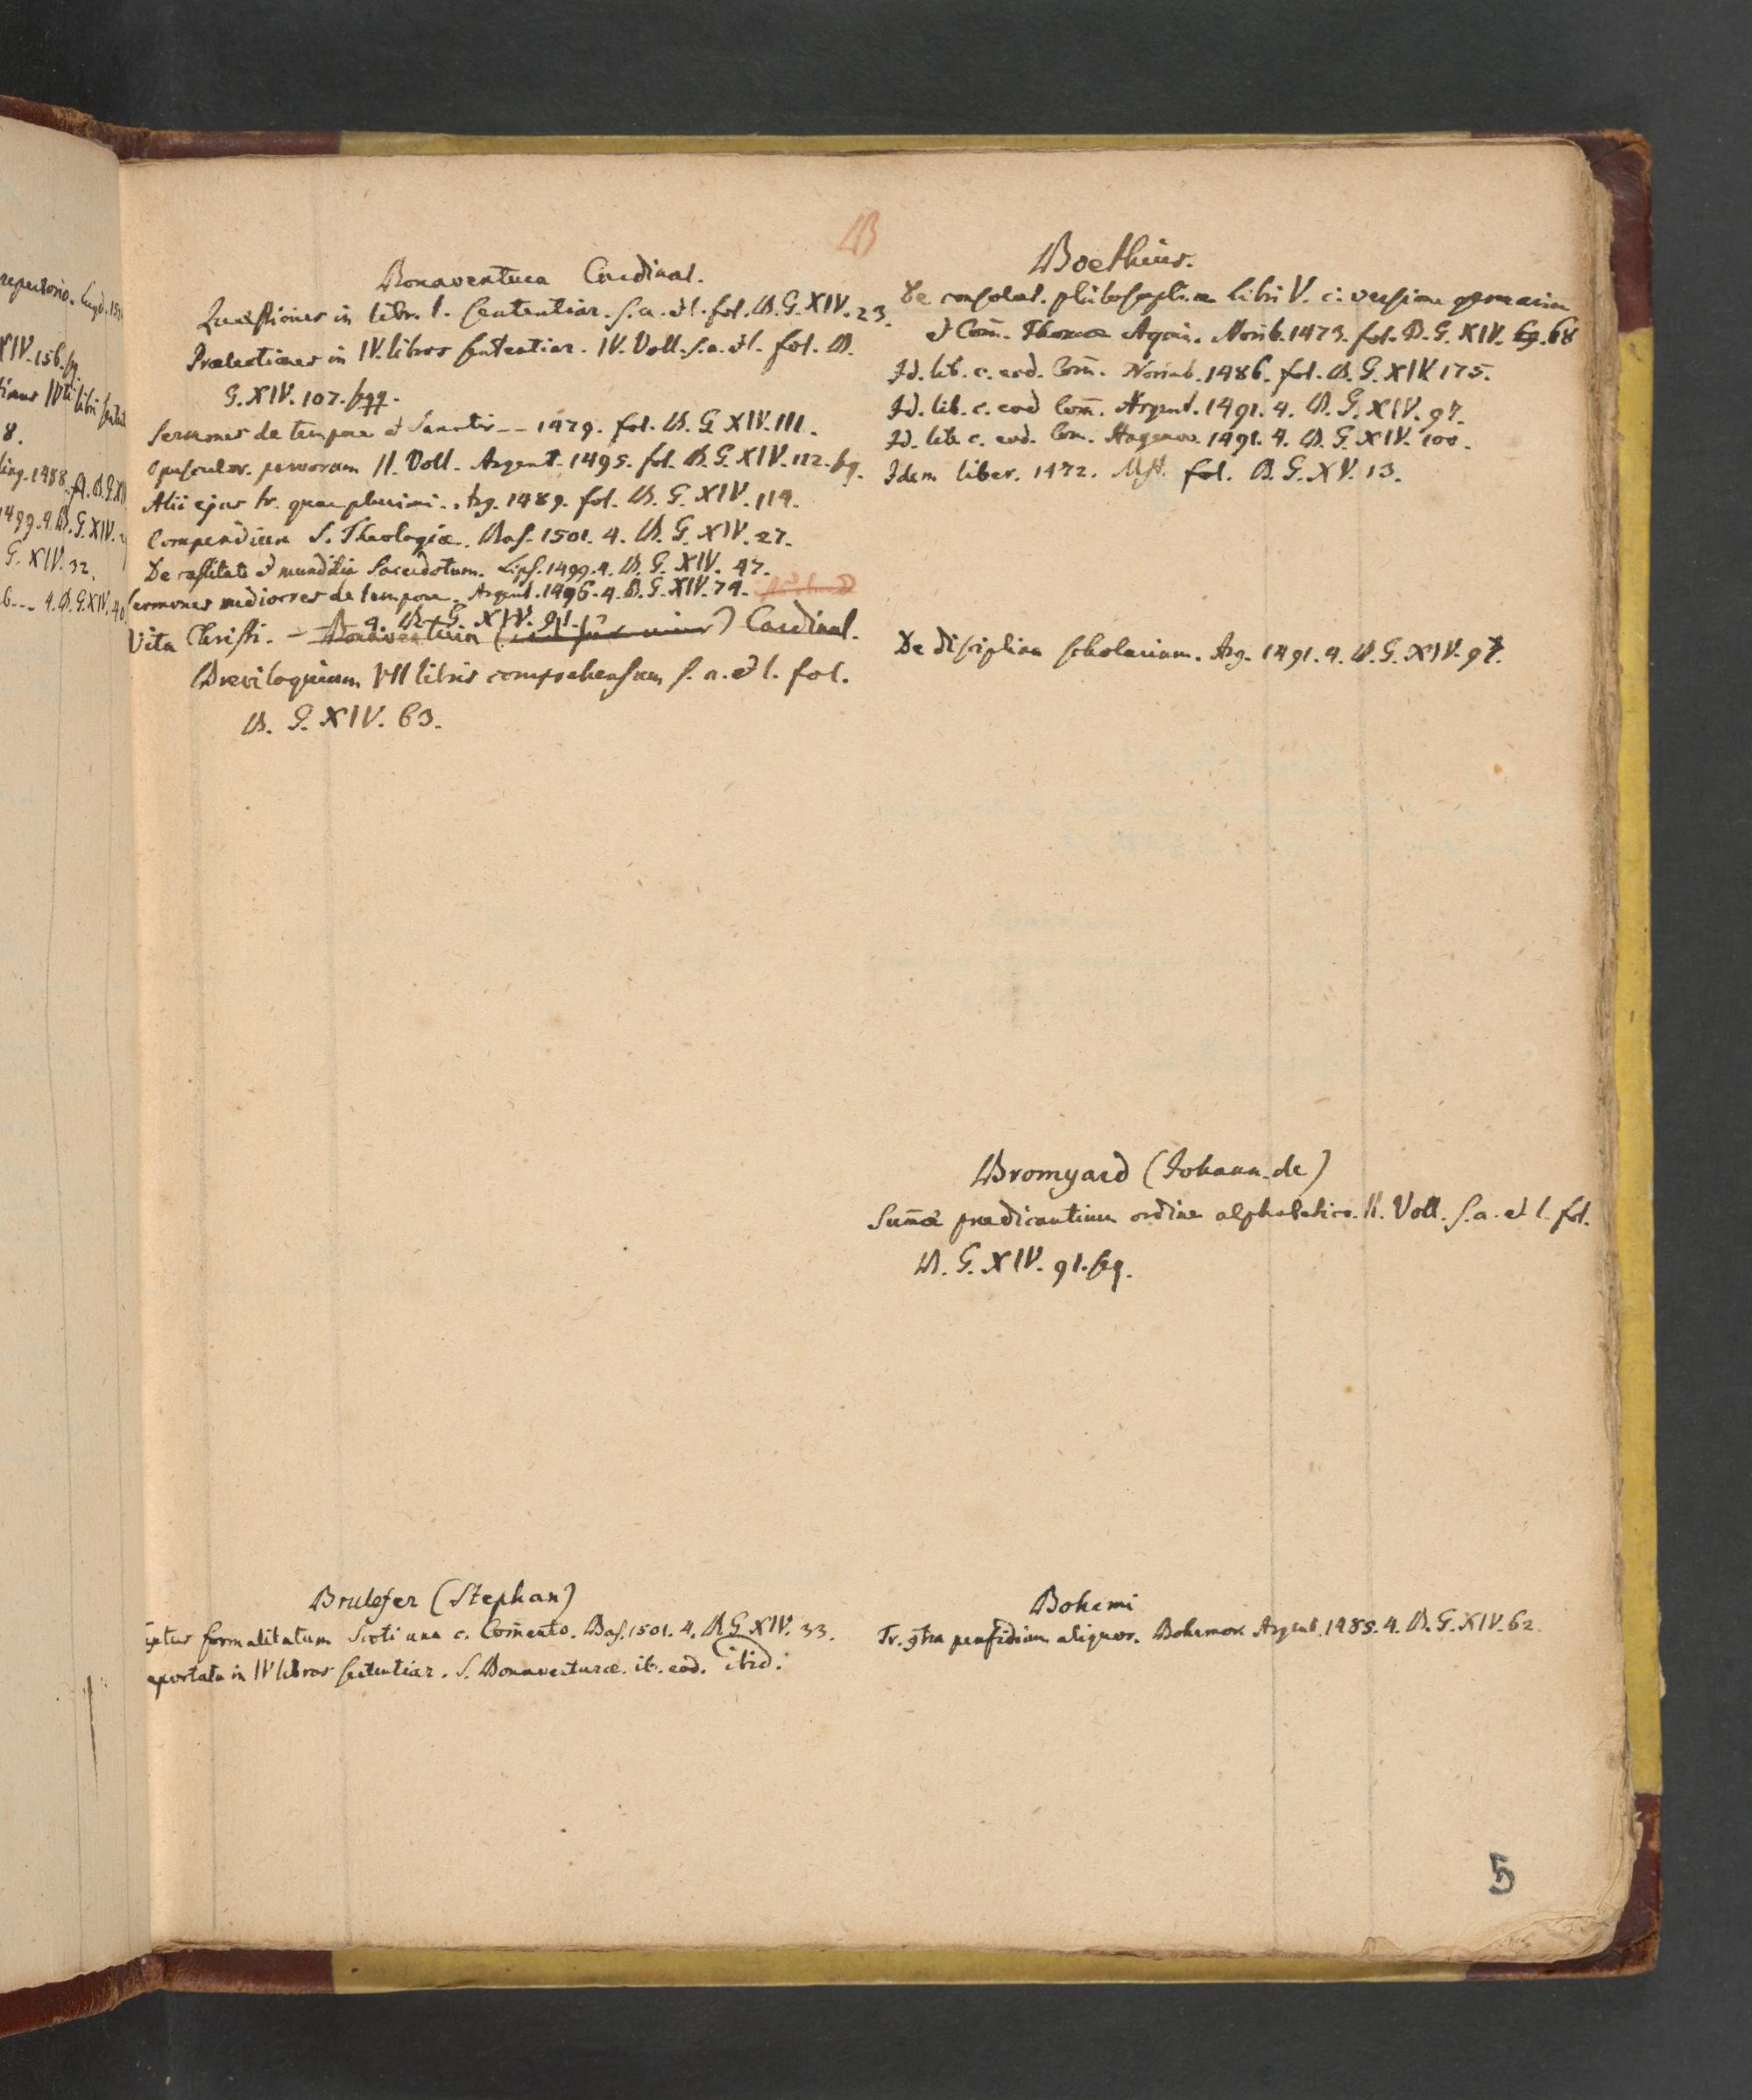 repertorio. Lugd. 15
XIV. 156. sq.
8.
ling. 1488. fl. B. G. XI
1499. 4. B. G. XIV.
G. XIV. 32.
6 -- 4. B. G. XIV. 40
B
Bonaventura Cardinal.
Quaestiones in libr. I. Sententiar. s. a. et l. fol. B. G. XIV. 23.
Praelectiones in IV. libros sententiar. IV. Voll. s. a. et l. fol. B.
G. XIV. 107. sqq.
Sermones de tempore et Sanctis -- 1479. fol. B. G. XIV. 111.
Opusculor. parvorum II. Voll. Argent. 1495. fol. B. G. XIV. 112. sq.
Alii ejus tr. quam plurimi. Arg. 1489. fol. B. G. XIV. 114.
Compendium S. Theologiae. Bas. 1501. 4. B. G. XIV. 27.
De castitate et munditia Sacerdotum. Lips. 1499. 4. B. G. XIV. 47.
Sermones mediocres de tempore. Argent. 1496. 4. B. G. XIV. 74.
Vita Christi. - 4. B. G. XIV. 91.
Bonaventura Cardinal.
Breviloquium VII libris comprehensum s. a. et l. fol.
B. G. XIV. 63.
Boethius.
De consolat. philosophiae Libri V. c. versione germanica
et Com̄. Thomae Aquin. Norib. 1473. fol. B. G. XIV. 69. 68
Id. lib. c. eod. Com̄. Norimb. 1486. fol. B. G. XIV 175.
Id. lib. c. eod Com̄. Argent. 1491. 4. B. G. XIV. 97.
Id. lib. c. eod. Com. Hagenov. 1491. 4. B. G. XIV. 100.
Idem liber. 1472. Mst. fol. B. G. XV. 13.
De disciplina scholarium. Arg. 1491. 4. B. G. XIV. 97.
Bromyard (Johann. de)
Sum̄a praedicantium ordine alphabetico. II. Voll. s. a. et l. fol.
B. G. XIV. 91. sq.
Brulefer (Stephan)
formalitatum Scoti una c. Com̄ento. Bas. 1501. 4. B. G. XIV. 33.
eportata in IV libros sententiar. S. Bonaventurae. ib. eod. ibid.
Bohemi
Tr. 9tra perfidiam aliquor. Bohemor. Argent. 1485. 4. B. G. XIV. 62.
5